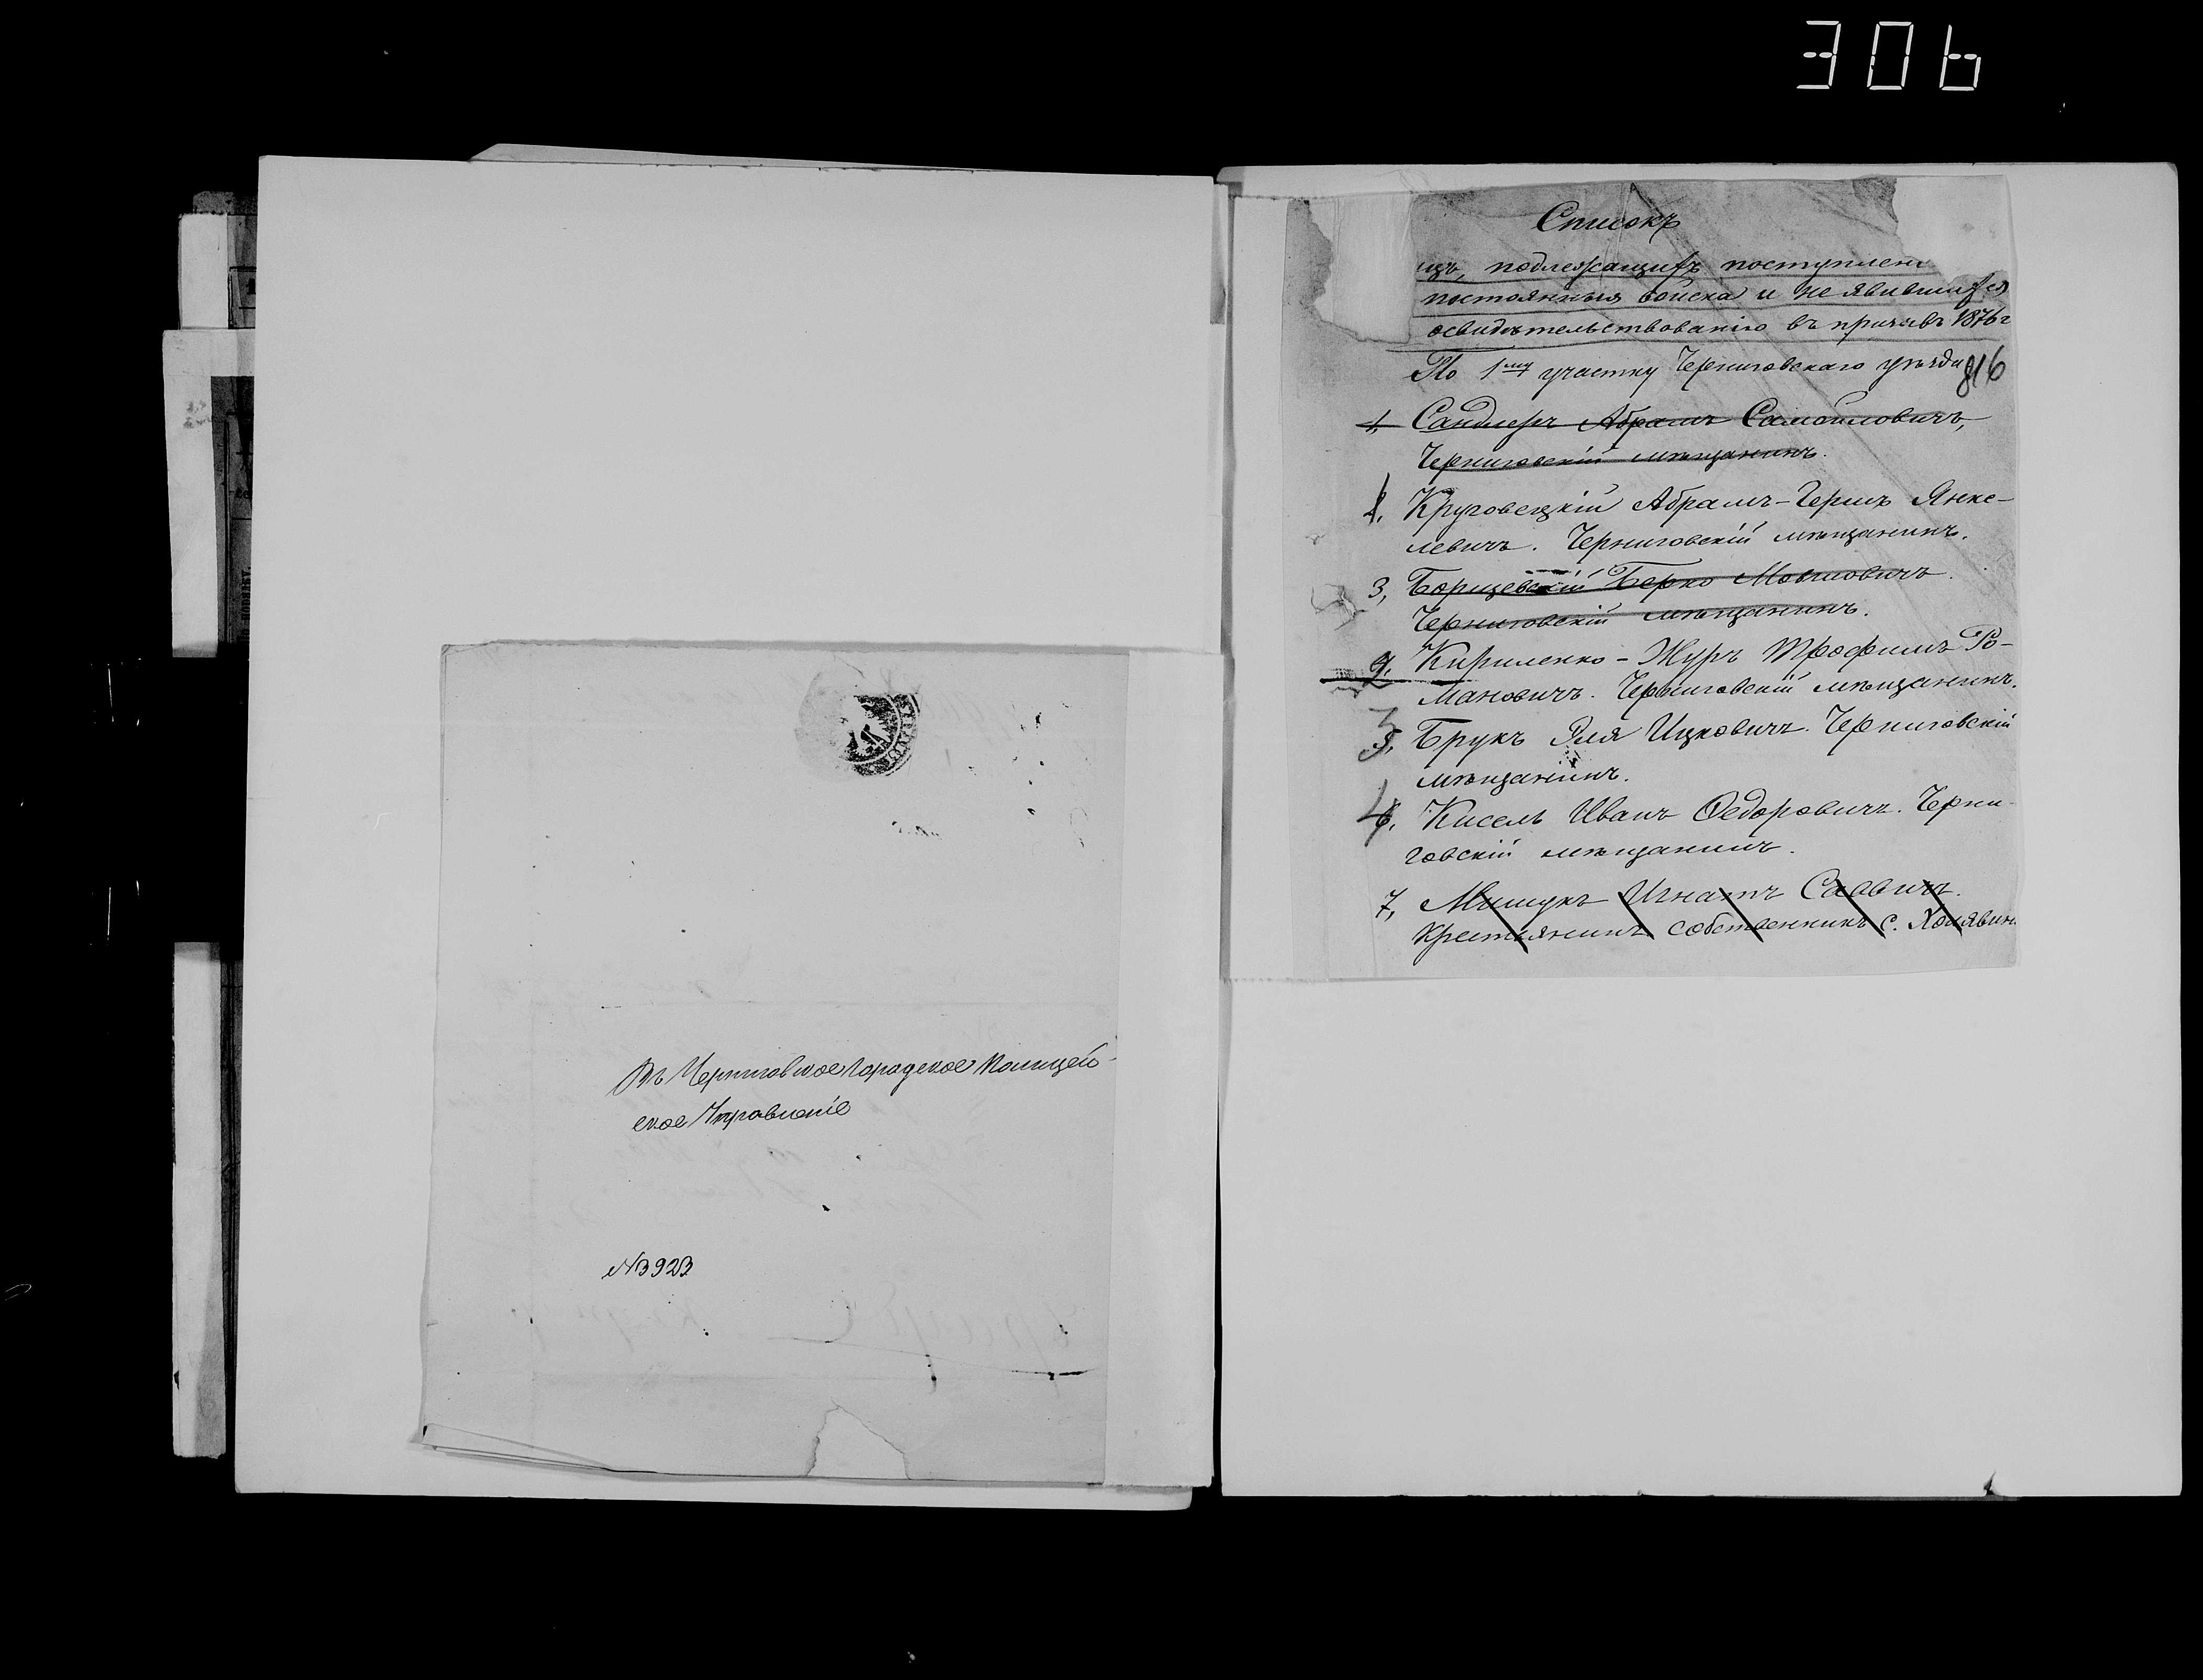 306
Въ Черниговское Городское Полицей-
ское Управленіе
№3923
Списокъ
ицъ, подлежащихъ поступлен
постоянныя войска и не явившихся
освидѣтельствованію въ призывъ 1876 г
По 1му участку Черниговскаго уѣзда
816
1, Сандлеръ Абрамъ Самойловичъ,
Черниговскій мѣщанинъ.
2. Круговецкій Абрамъ-Гершъ Янке-
левичъ. Черниговскій мѣщанинъ.
3, Борщевскій Берко Мовшовичъ.
Черниговскій мѣщанинъ.
4. Кириленко-Журъ Трофимъ Ро-
мановичъ. Черниговскій мѣщанинъ.
3
5. Брукъ Эля Ицковичъ. Черниговскій
мѣщанинъ.
4
6. Кисель Иванъ Ѳедоровичъ. Черни-
говскій мѣщанинъ.
7, Мишукъ Игнатъ Саввичъ.
Крестьянинъ собственникъ с. Холявин.